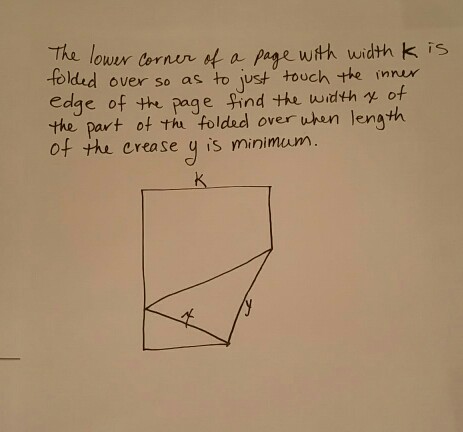 The lower corner of a page with width k is
folded over so as to just touch the inner
edge of the page find the width x of
the part of the folded over when length
of the crease y is minimum.
K
x
y